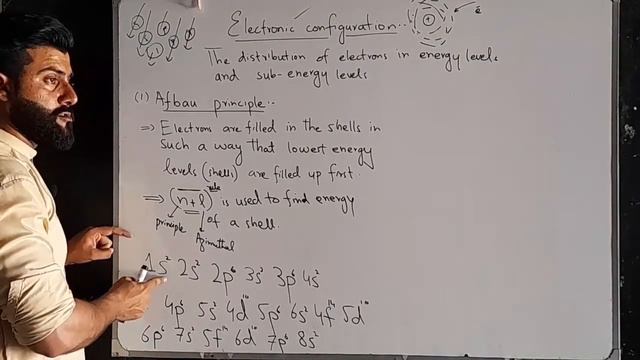 Electronic configuration..
The distribution of electrons in energy levels
and sub-energy levels
(1) Afbau principle..
⇒ Electrons are filled in the shells in
such a way that lowest energy
levels (shells) are filled up first.
⇒ (n+l) rule is used to find energy
of a shell.
principle
Azimuthal
1s² 2s² 2p⁶ 3s² 3p⁶ 4s²
4p⁶ 5s² 4d¹⁰ 5p⁶ 6s² 4f¹⁴ 5d¹⁰
6p⁶ 7s² 5f¹⁴ 6d¹⁰ 7p⁶ 8s²